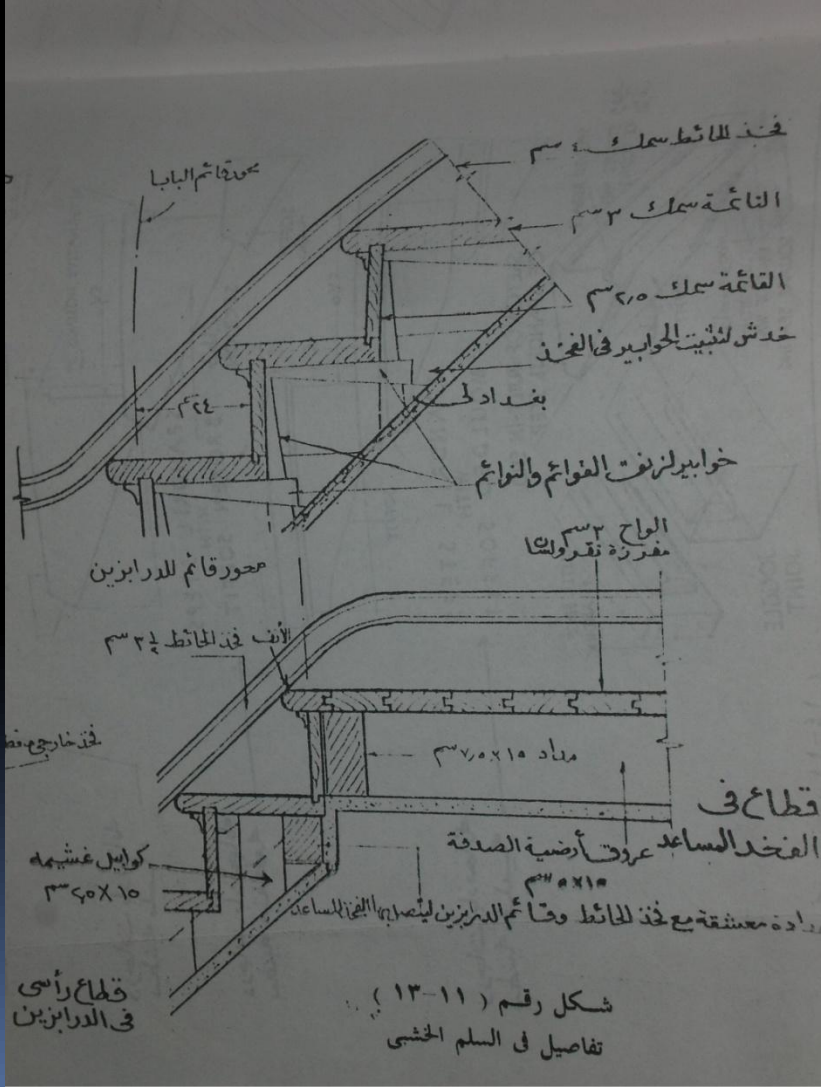 فخذ الحائط سمك ٤ سم
محور قائم البابا
النائمة سمك ٣ سم
القائمة سمك ٢٫٥ سم
خدش لتثبيت الخوابير فى الفخذ
بغدادلى
٢٤ سم
خوابير لزنق القوائم والنوائم
الواح ٣ سم
مفرزة نقر ولسان
محور قائم للدرابزين
الأنف
فخذ الحائط ٣ ½ سم
فخذ خارجى
مداد ١٥×٧٫٥ سم
قطاع فى
الفخد المساعد
عروق أرضية الصدفة
١٥×٥ سم
كوابيل غشيمه
١٥ × ٢٫٥ سم
مدادة معشقة مع فخذ الحائط وقائم الدرابزين ليتصل بها الفخذ المساعد
قطاع رأسى
فى الدرابزين
شكل رقم (١١-١٣)
تفاصيل فى السلم الخشبى